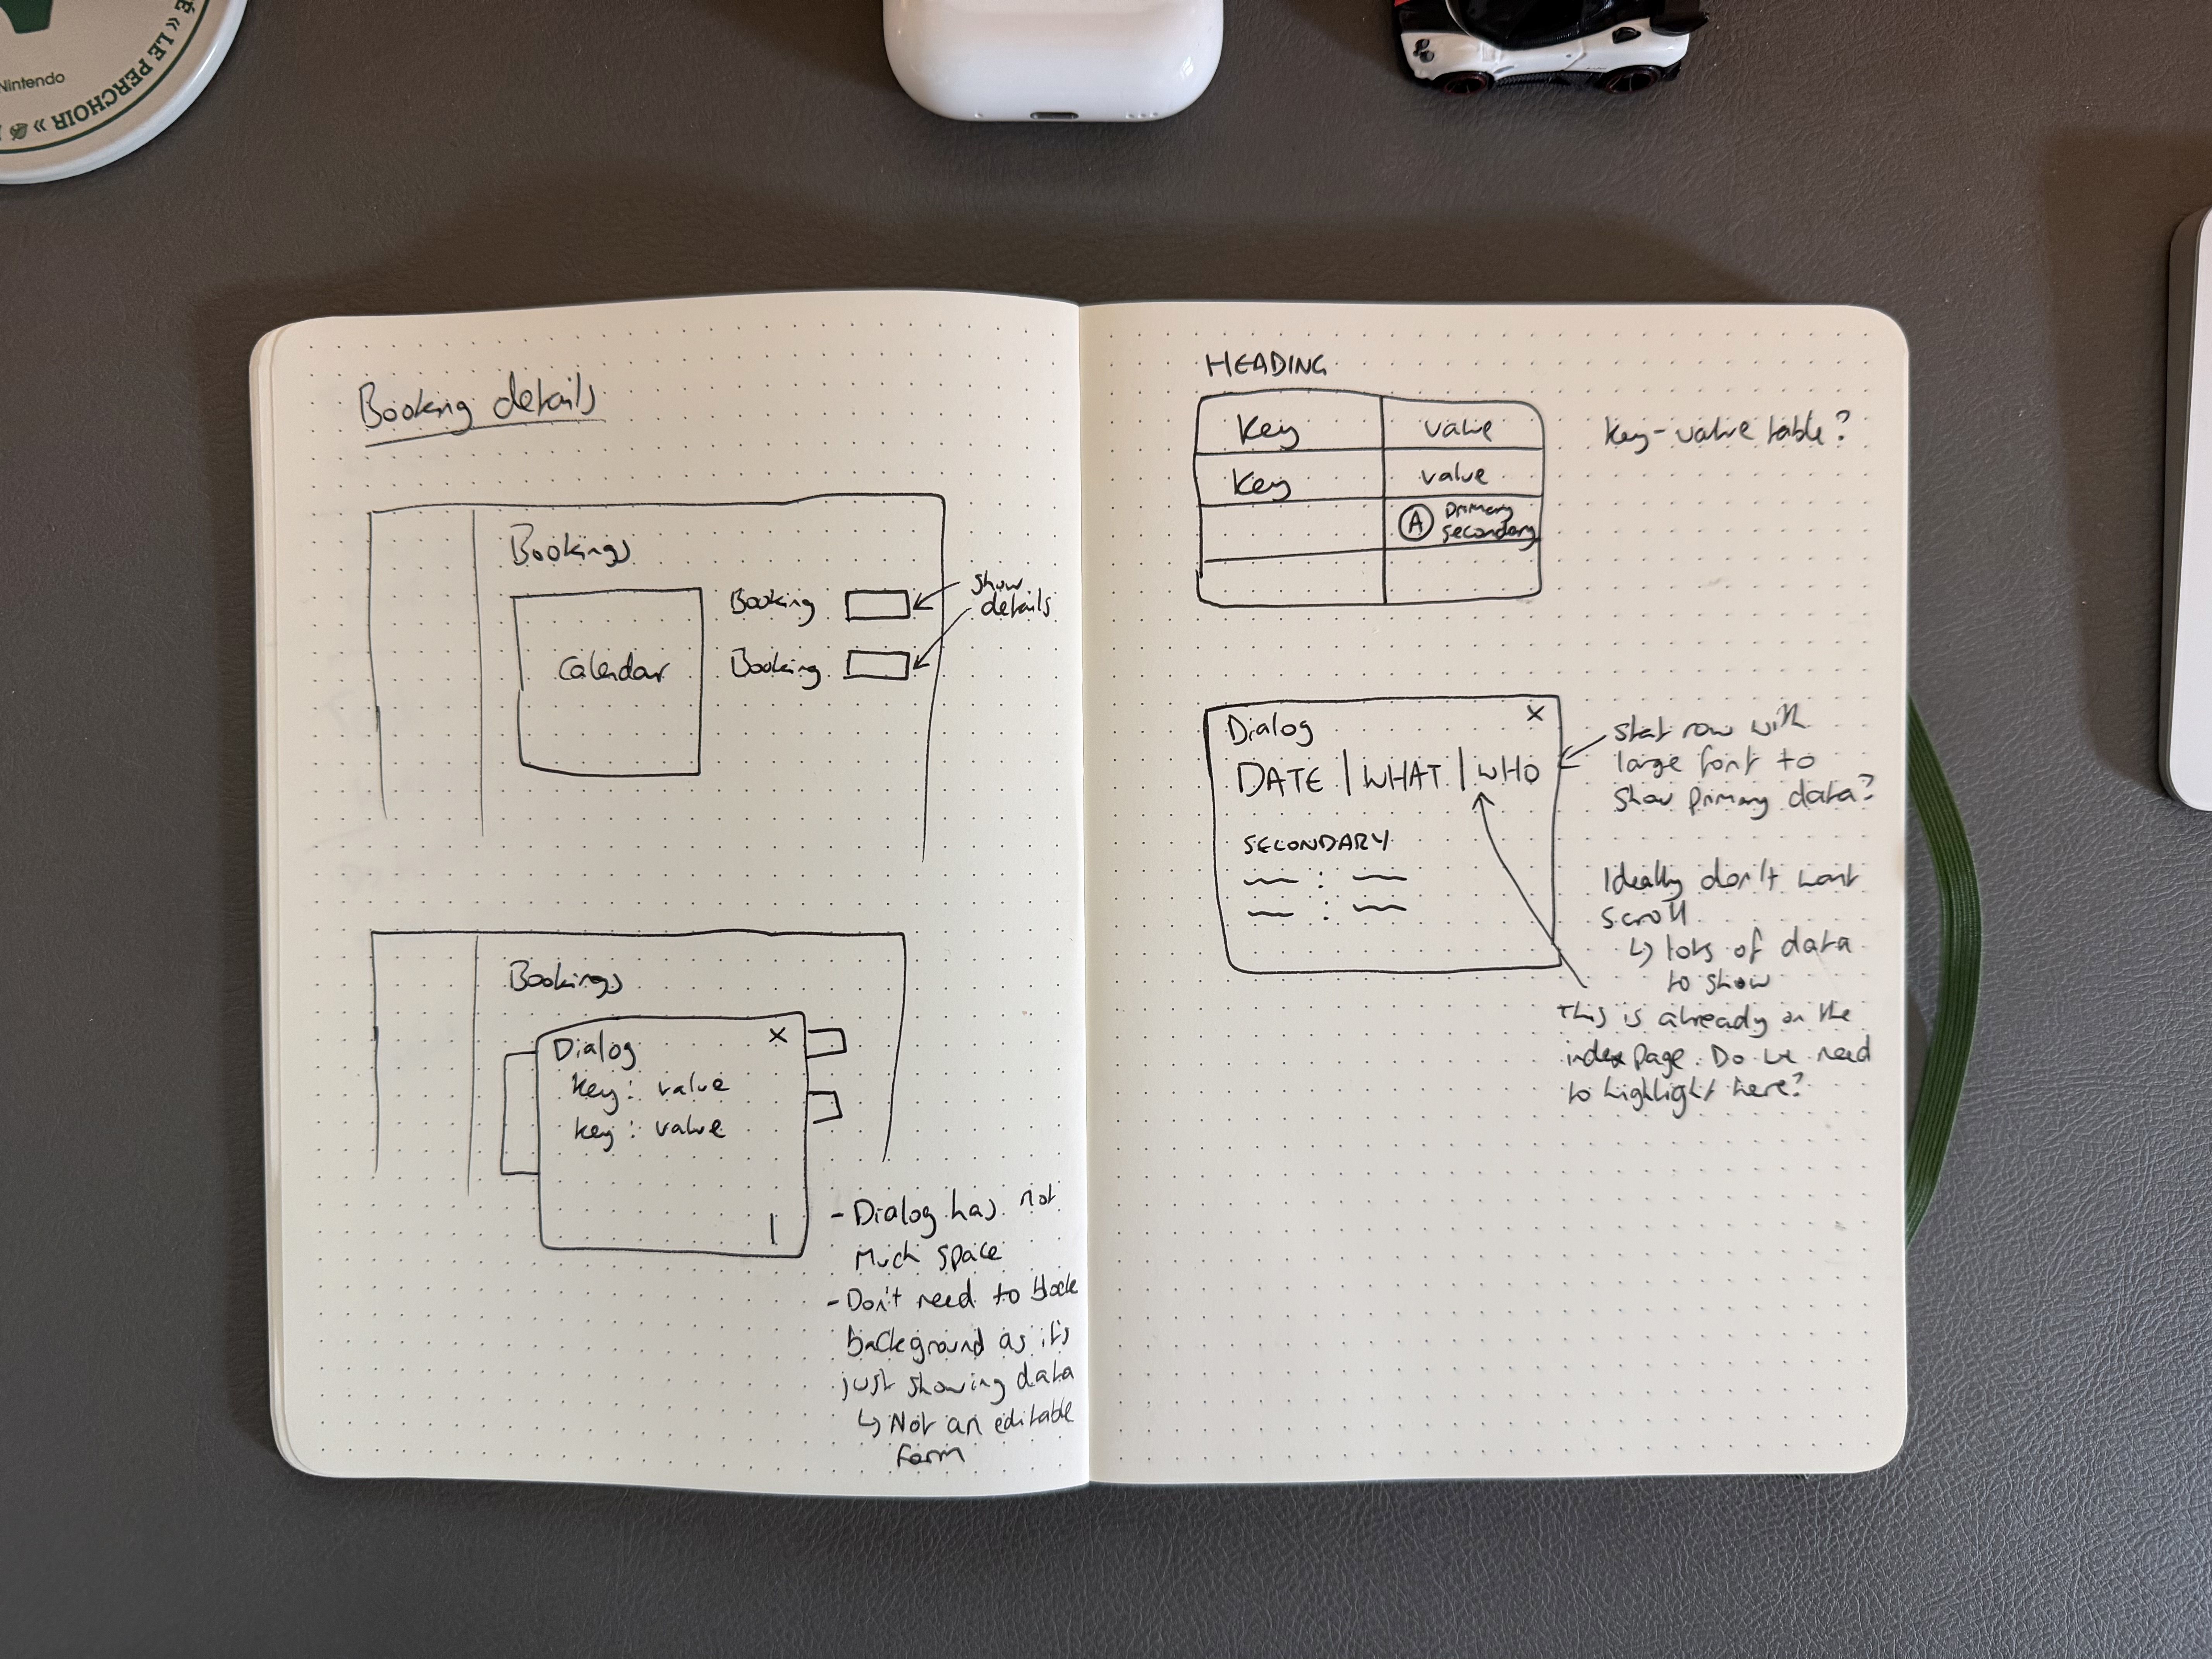 Nintendo
« LE PERCHOIR »
Booking details
Bookings
Calendar
Booking
Booking
show
details
Bookings
Dialog X
key: value
key: value
- Dialog has not
much space
- Don't need to block
background as it's
just showing data
↳ Not an editable
form
HEADING
Key value
Key value
A Primary
secondary
key-value table?
Dialog X
DATE | WHAT | WHO
SECONDARY
stat row with
large font to
show primary data?
Ideally don't want
scroll
↳ lots of data
to show
This is already on the
index page. Do we need
to highlight here?